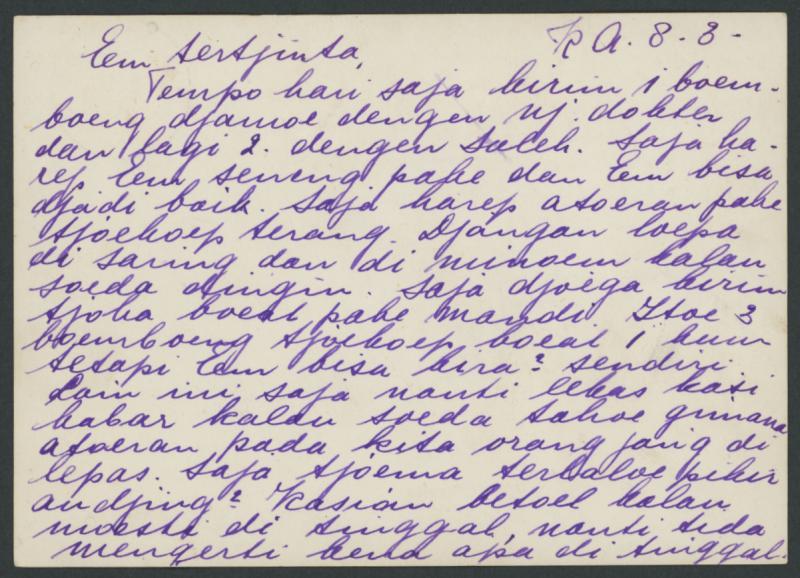 K A. 8 - 3 -
Eem tertjinta,
Tempo hari saja kirim 1 boem-
boeng djamoe dengen nj. dokter
dan lagi 2. dengen Saleh. Saja ha-
rep Eem seneng pake dan Eem bisa
djadi baik. Saja harep atoeran pake
tjoekoep terang. Djangan loepa
di saring dan di minoem kalau
soeda dingin. Saja djoega kirim
tjoka boeat pake mandi. Itoe 3
boemboeng tjoekoep boeat 1 kuur
tetapi Eem bisa kira² sendiri.
Lain ini saja nanti lekas kasi
kabar kalau soeda tahoe gimana
atoeran pada kita orang jang di
lepas. Saja tjoema terlaloe pikir
andjing² Kasian betoel kalau
moesti di tinggal, nanti tida
mengerti kena apa di tinggal.